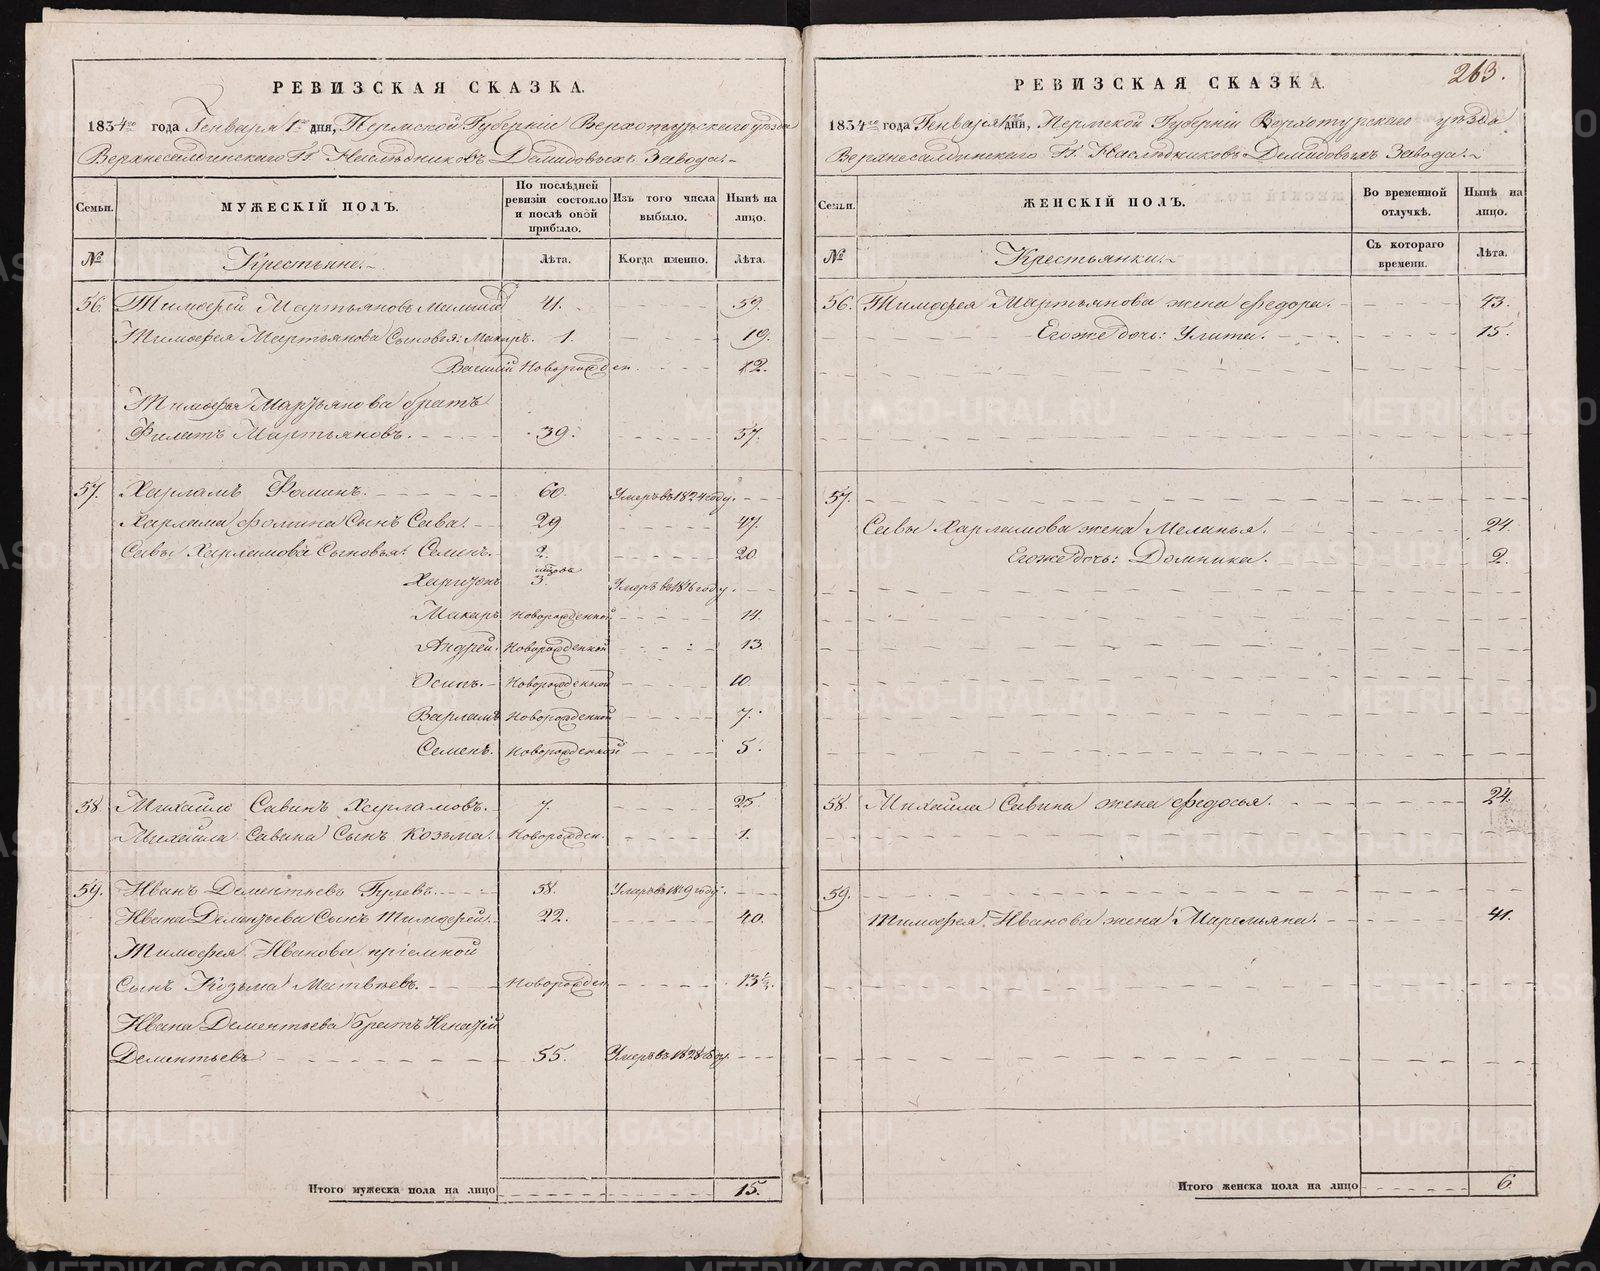 РЕВИЗСКАЯ СКАЗКА.
1834го года Генваря 1го дня, Пермской Губерніи Верхотурскаго уѣзда
Верхнесалдинскаго Гг. Наслѣдниковъ Демидовыхъ Завода.
Семьи. МУЖЕСКІЙ ПОЛЪ. По послѣдней ревизіи состояло и послѣ оной прибыло. Изъ того числа выбыло. Нынѣ на лицо.
№ Крестьяне. Лѣта. Когда именно. Лѣта.
56. Тимофей Мартьяновъ 41. 59.
Тимофея Мартьянова Сыновья: Макаръ. 1. 19.
Василій Новорожден. 12.
Тимофея Мартьянова братъ
Филатъ Мартьяновъ. 39. 57.
57. Харламъ Фоминъ. 60. Умеръ въ 1824 году.
Харлама Фомина Сынъ Сава. 29 47.
Савы Харламова Сыновья: 2. 20
3. Умеръ въ 1816 году.
Макаръ Новорожденной 14.
Андрей. Новорожденной 13.
Осипъ. Новорожденной 10.
Варламъ Новорожденной 7.
Семенъ. Новорожденной 5.
58. Михайло Савинъ Харламовъ. 7. 25.
Михайла Савина Сынъ Козьма. Новорожден. 1.
59. Иванъ Дементьевъ 58. Умеръ въ 1819 году.
Ивана Дементьева Сынъ Тимофей. 22. 40.
Тимофея Иванова пріемной
Сынъ Козьма Матвѣевъ. Новорожден 13½.
Ивана Дементьева братъ Игнатій
Дементьевъ 55. Умеръ въ 1828 году
Итого мужеска пола на лицо 15.
263.
РЕВИЗСКАЯ СКАЗКА.
1834го года Генваря 1го дня, Пермской Губерніи Верхотурскаго уѣзда
Верхнесалдинскаго Гг. Наслѣдниковъ Демидовыхъ Завода.
Семьи. ЖЕНСКІЙ ПОЛЪ. Во временной отлучкѣ. Нынѣ на лицо.
№ Крестьянки. Съ котораго времени. Лѣта.
56. Тимофея Мартьянова жена Федора. 43.
Егоже дочь: Улита. 15.
57.
Савы Харламова жена Меланья. 24.
Егоже дочь: Домника. 2.
58. Михайла Савина жена Федосья. 24.
59.
Тимофея Иванова жена Маремьяна. 41.
Итого женска пола на лицо 6.
METRIKI.GASO-URAL.RU